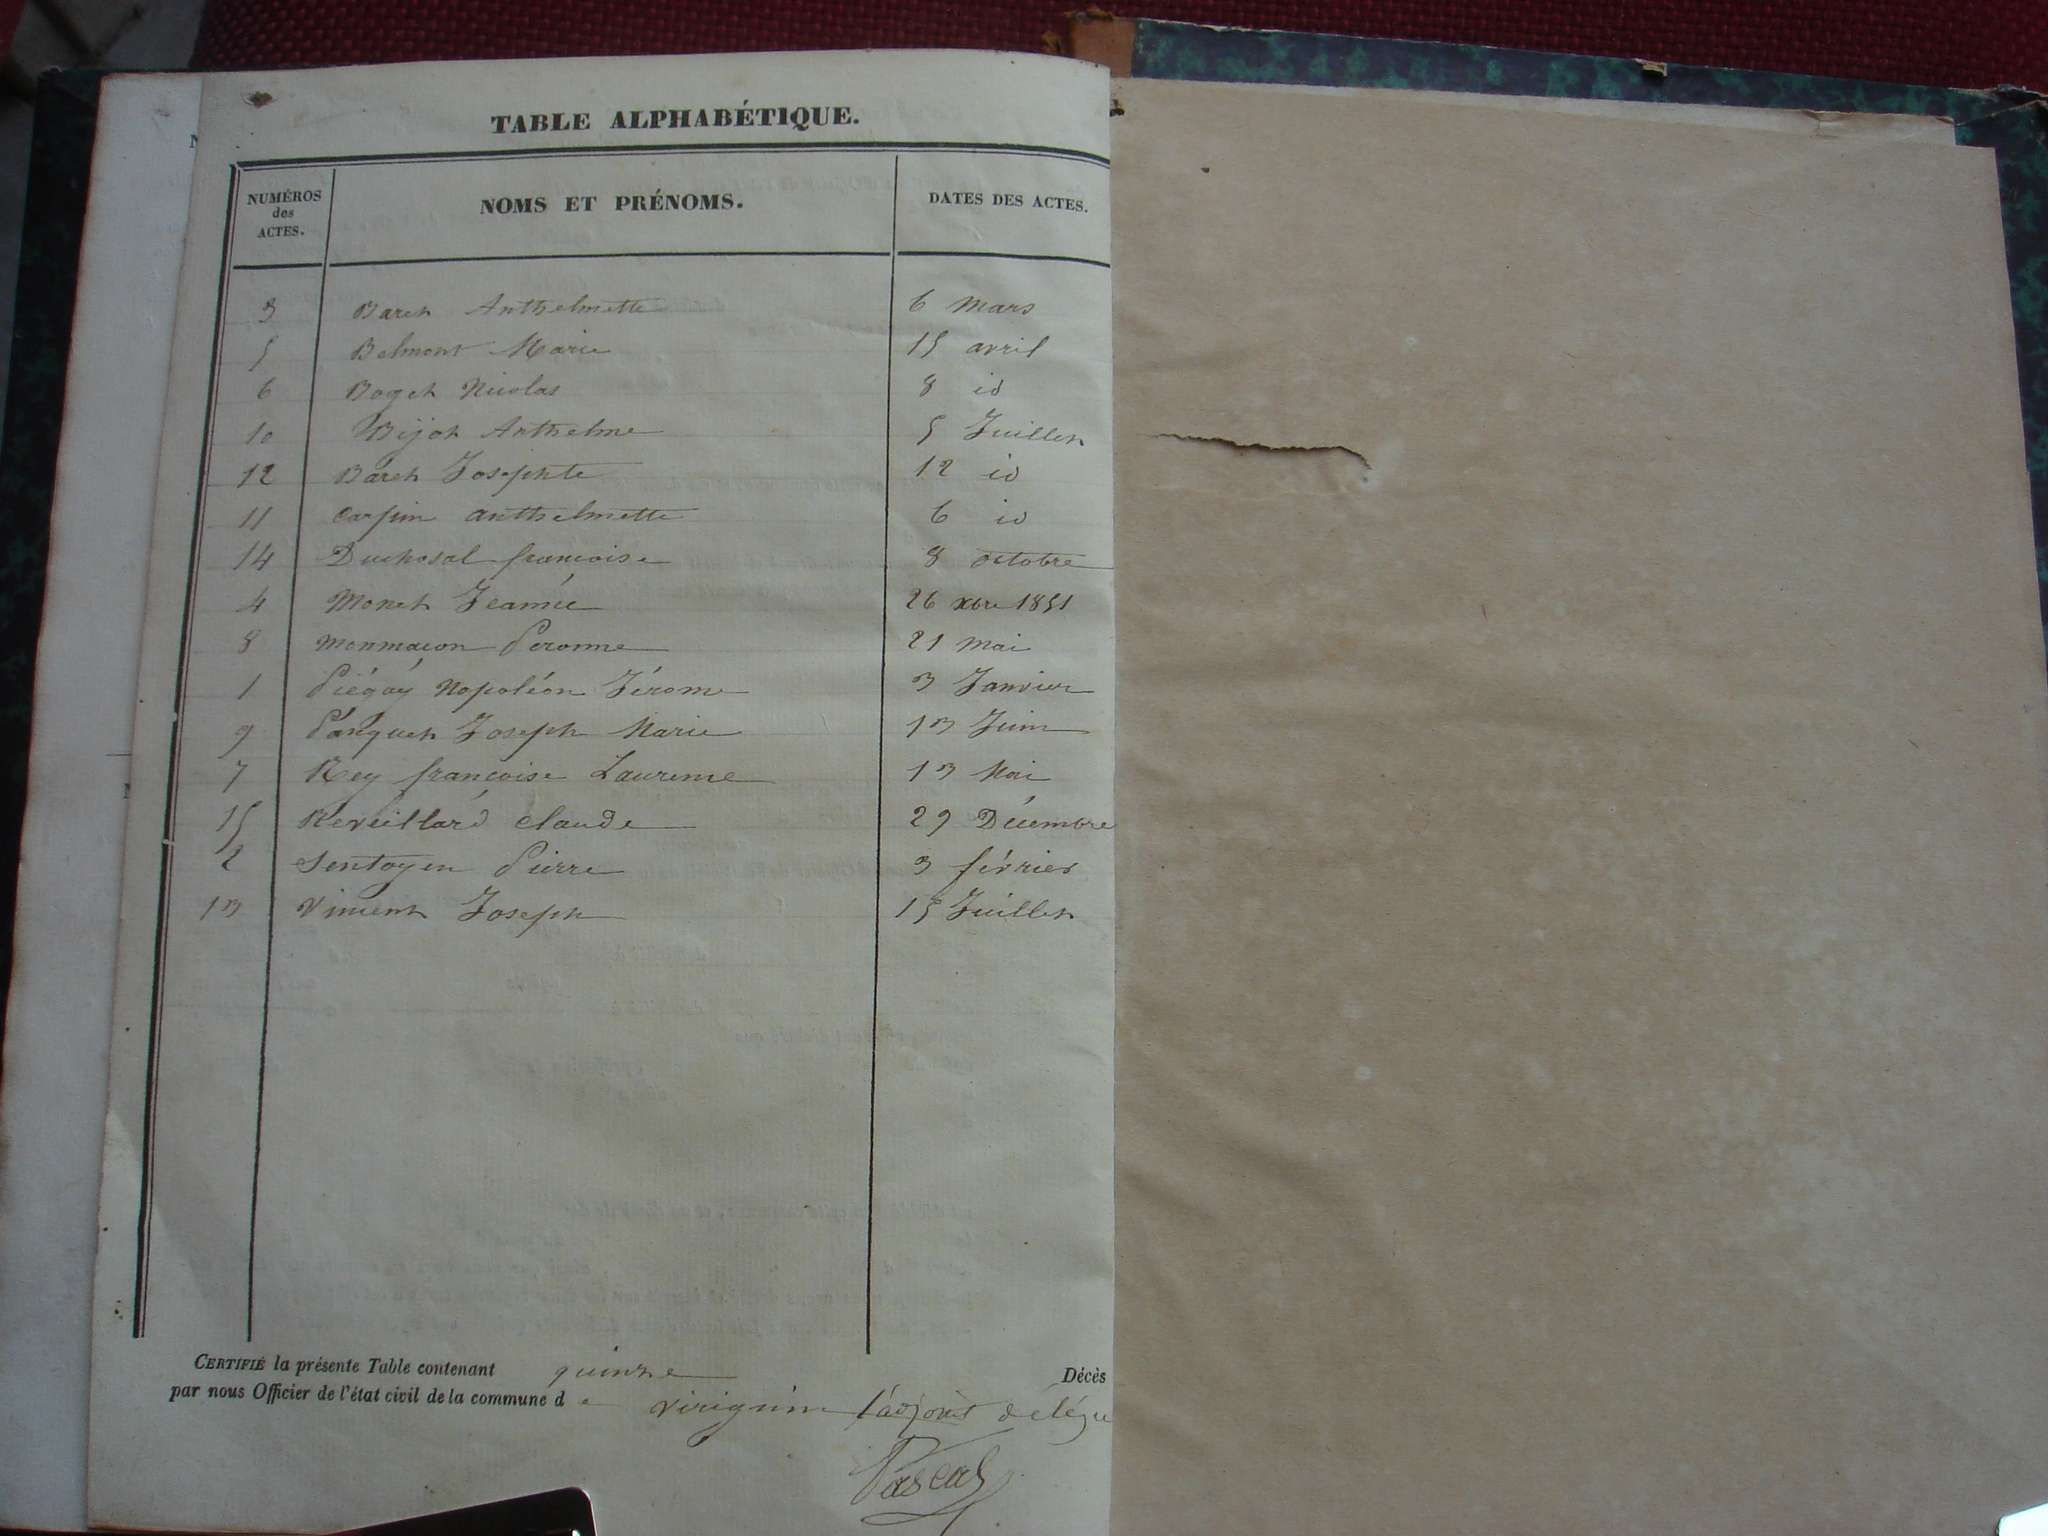 TABLE ALPHABÉTIQUE.
NUMÉROS des ACTES. NOMS ET PRÉNOMS. DATES DES ACTES.
3 Baret Anthelmette 6 Mars
5 Belmont Marie 15 avril
6 Boget Nicolas 8 id
10 Bijot Anthelme 5 Juillet
12 Baret Josephte 12 id
11 Carpin anthelmette 6 id
14 Duchosal francoise 8 octobre
4 Monet 26 xbre 1851
8 Peronne 21 Mai
1 Piégay Napoléon Jérome 3 Janvier
9 Panquet Joseph Marie 13 Juin
7 Rey francoise Laurence 13 Mai
15 Reveillard Claude 29 Décembre
2 Sentoyen Pierre 3 février
13 Vincent Joseph 15 Juillet
CERTIFIÉ la présente Table contenant quinze Décès
par nous Officier de l'état civil de la commune de virignin l'adjoint délégu
Pascal